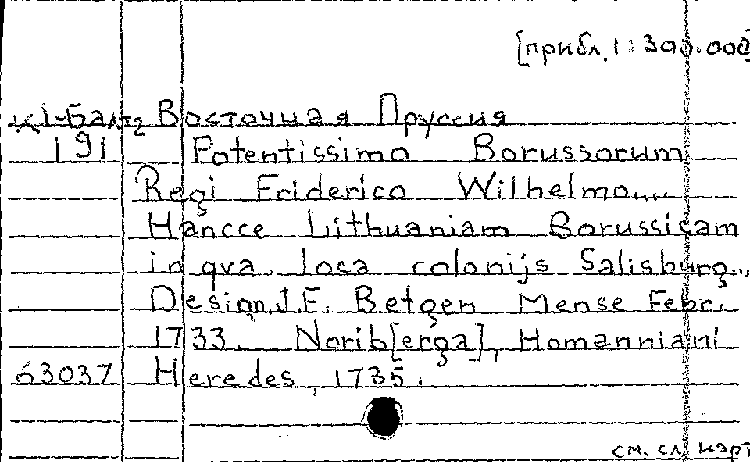 [прибл. 1:300.000]
К1-Балт2 Восточная Пруссия
191 Potentissimo Borussorum
Regi Friderico Wilhelmo...
Hancce Lithuaniam Borussicam
in qva loca colonijs Salisburg..,
Design. J.F. Betgen Mense Febr.
1733. Norib[erga], Homanniani
63037 Heredes, 1735.
см. сл. карт